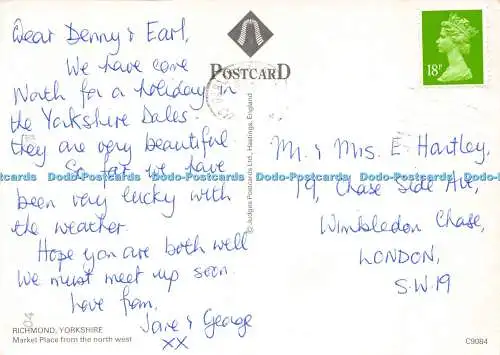 Dear Denny & Earl,
We have come
North for a holiday in
the Yorkshire Dales.
they are very beautiful.
So far we have
been very lucky with
the weather.
Hope you are both well
We must meet up soon.
Love from,
Jane & George
xx
RICHMOND, YORKSHIRE
Market Place from the north west
POSTCARD
© Judges Postcards Ltd, Hastings, England
18P
Mr. & Mrs. E. Hartley,
79, Chase Side Ave,
Wimbledon Chase,
LONDON,
S.W.19
C9084
Dodo-Postcards Dodo-Postcards Dodo-Postcards Dodo-Postcards Dodo-Postcards